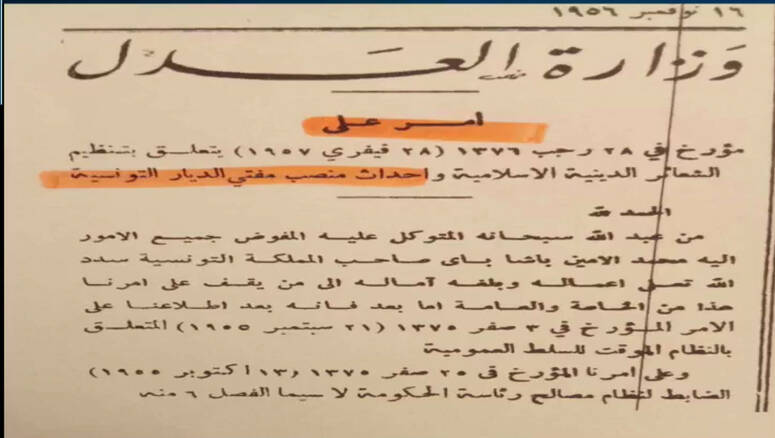 ١٦ نوفمبر ١٩٥٦
وزارة العدل
امر علي
مؤرخ في ٢٨ رجب ١٣٧٦ (٢٨ فيفري ١٩٥٧) يتعلق بتنظيم
الشعائر الدينية الاسلامية واحداث منصب مفتي الديار التونسية
الحمد لله
من عبد الله سبحانه المتوكل عليه المفوض جميع الامور
اليه محمد الامين باشا باى صاحب المملكة التونسية سدد
الله تعلى اعماله وبلغه آماله الى من يقف على امرنا
هذا من الخاصة والعامة اما بعد فانه بعد اطلاعنا على
الامر المؤرخ في ٣ صفر ١٣٧٥ (٢١ سبتمبر ١٩٥٥) المتعلق
بالنظام الموقت للسلط العمومية
وعلى امرنا المؤرخ فى ٢٥ صفر ١٣٧٥ (١٣ اكتوبر ١٩٥٥)
الضابط لنظام مصالح رئاسة الحكومة لا سيما الفصل ٦ منه